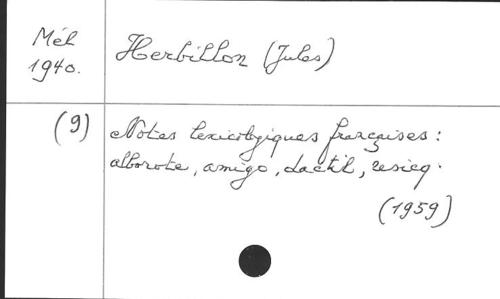 Mél
1940.
Herbillon (Jules)
(9)
Notes lexicologiques françaises :
alborote, amigo, dactil, resicq.
(1959)